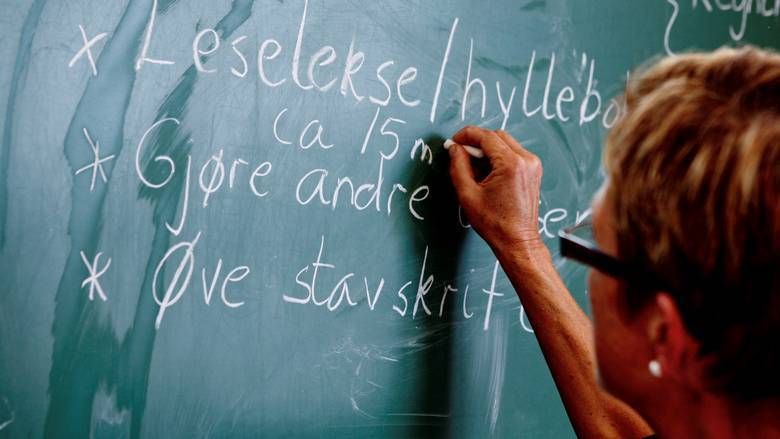 * Leselekse/hyllebø
ca 15 m
* Gjøre andre
* Øve stavskrift